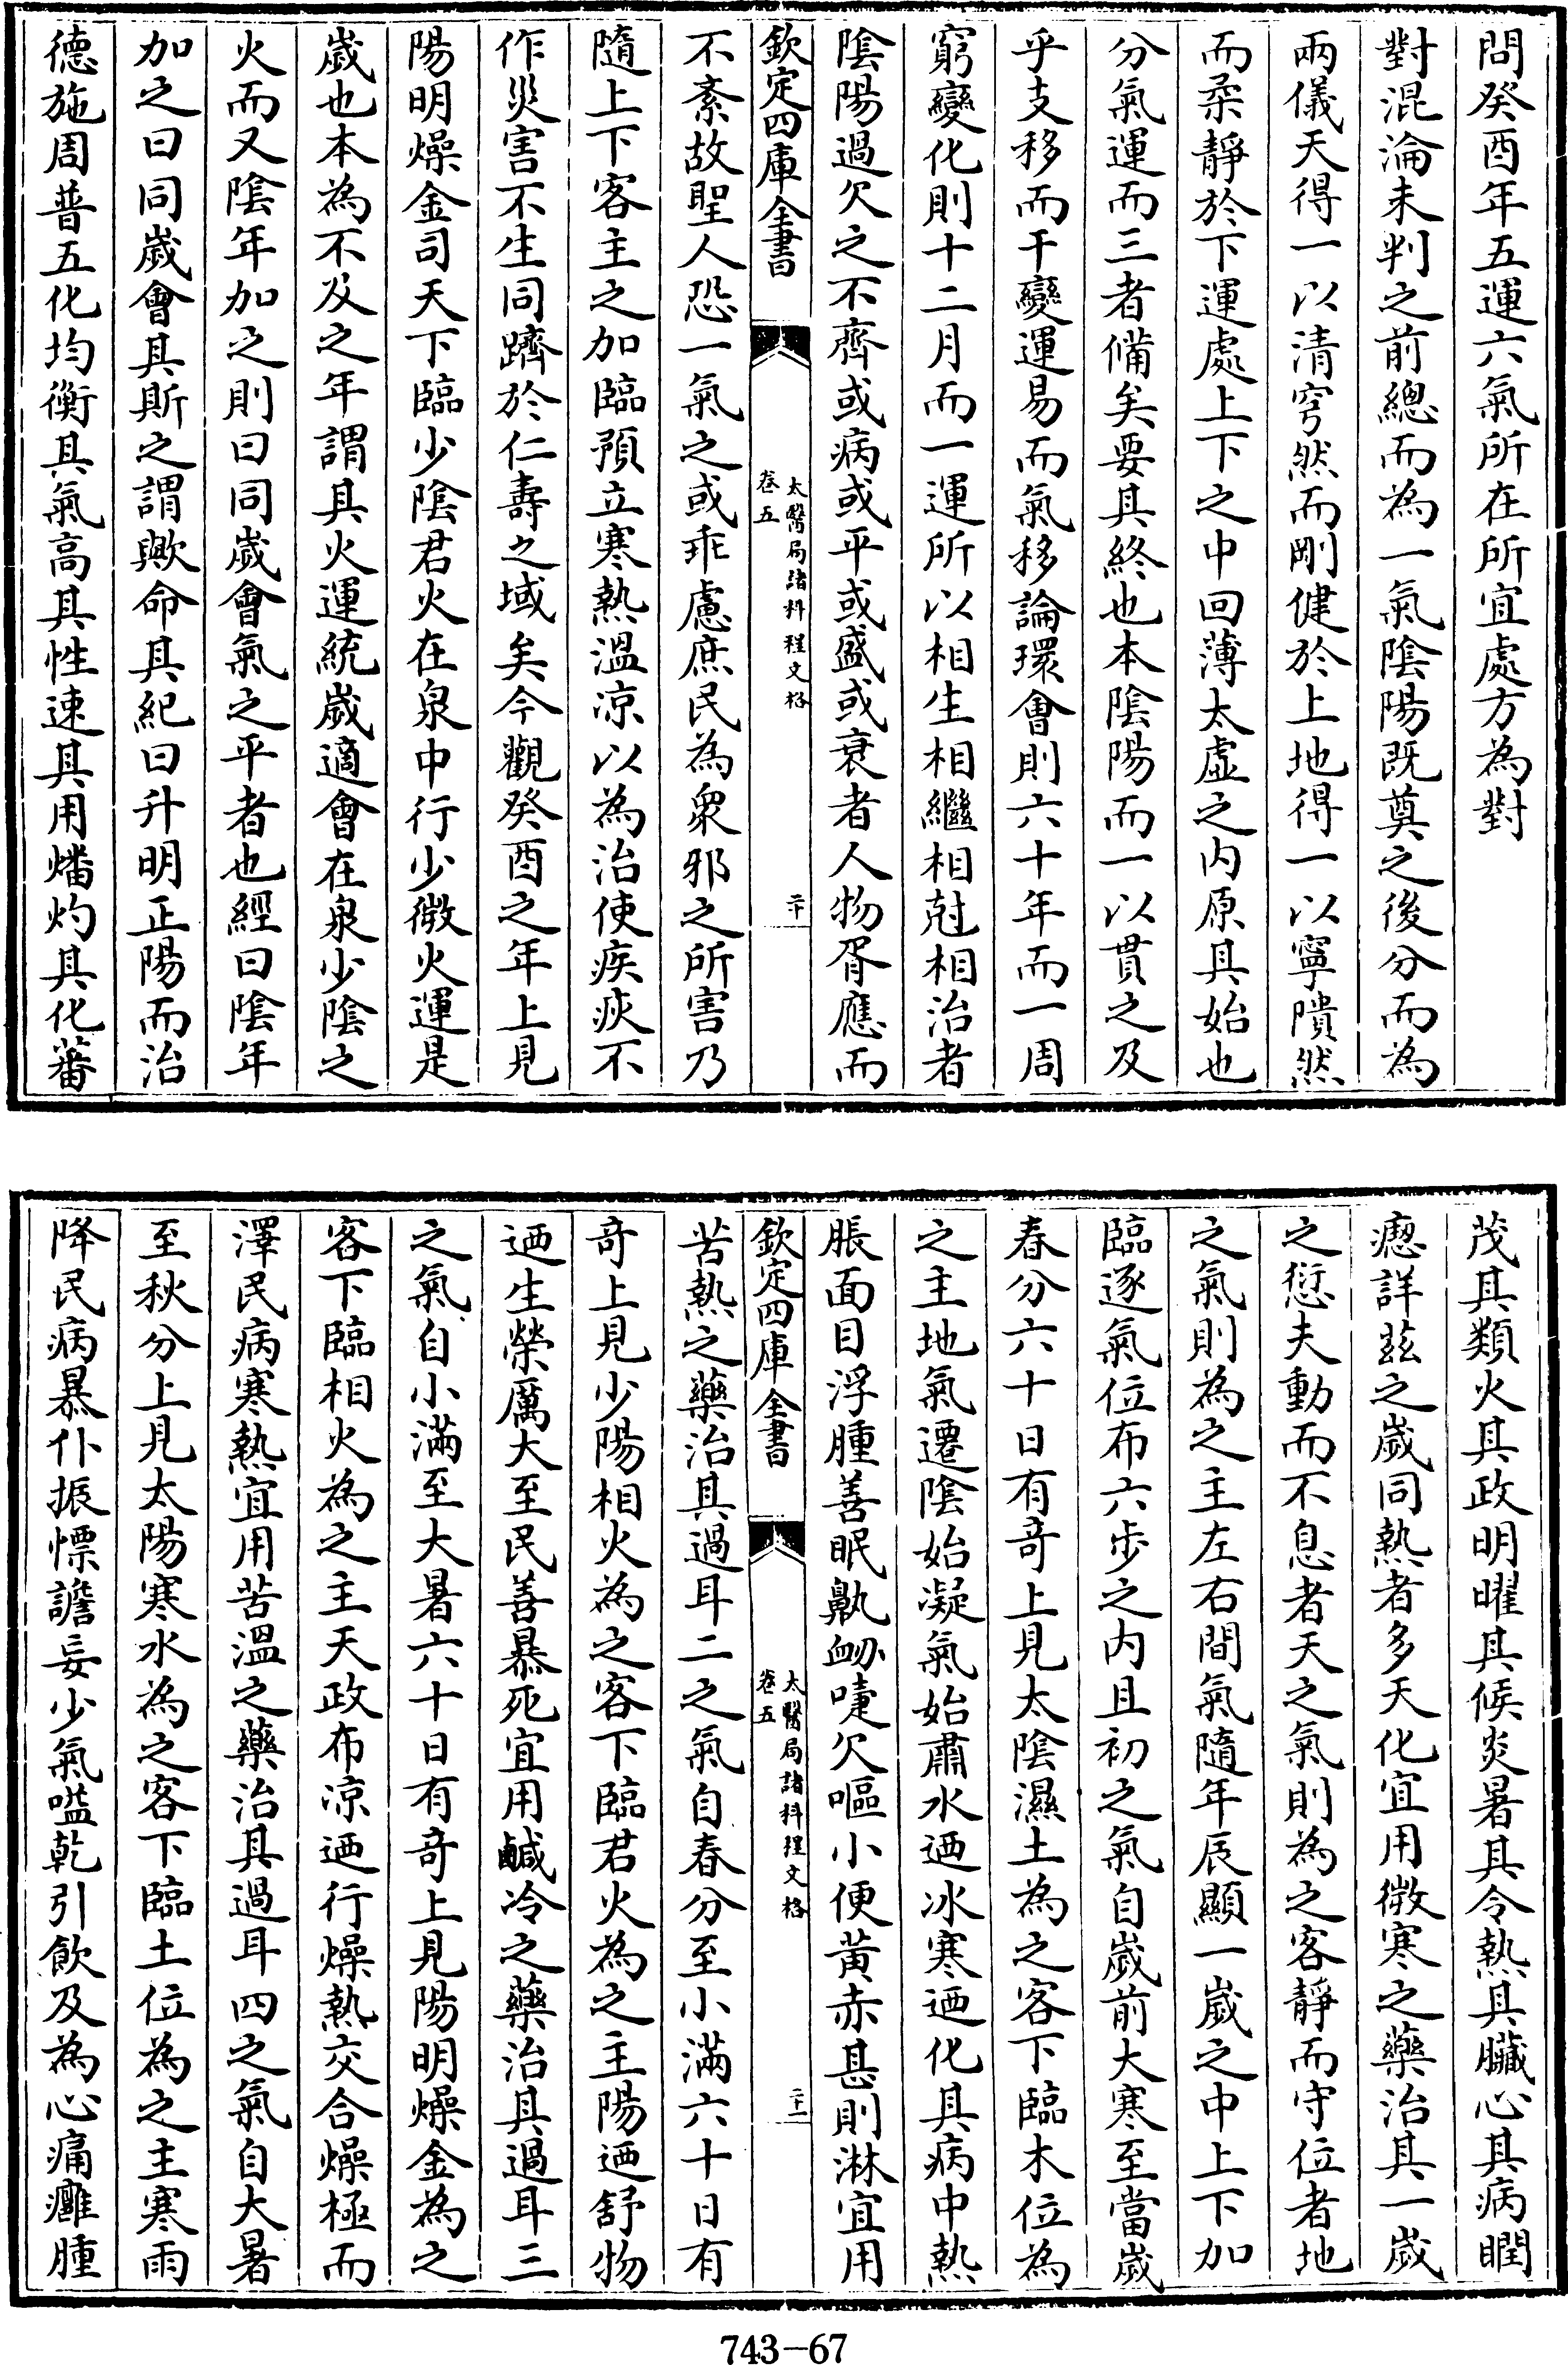 問癸酉年五運六氣所在所宜處方為對
對混淪未判之前總而為一氣陰陽既奠之後分而為
兩儀天得一以清穹然而剛健於上地得一以寧隤然
而柔靜於下運處上下之中回薄太虛之内原其始也
分氣運而三者備矣要其終也本陰陽而一以貫之及
乎支移而干變運易而氣移論環會則六十年而一周
窮變化則十二月而一運所以相生相繼相尅相治者
陰陽過欠之不齊或病或平或盛或衰者人物胥應而
欽定四庫全書
太醫局諸科程文格
卷五
二十
不紊故聖人恐一氣之或乖慮庶民為衆邪之所害乃
隨上下客主之加臨預立寒熱溫凉以為治使疾疢不
作災害不生同躋於仁壽之域矣今觀癸酉之年上見
陽明燥金司天下臨少陰君火在泉中行少徴火運是
歲也本為不及之年謂其火運統歲適會在泉少陰之
火而又陰年加之則曰同歲會氣之平者也經曰陰年
加之曰同歲會其斯之謂歟命其紀曰升明正陽而治
德施周普五化均衡其氣高其性速其用燔灼其化蕃
茂其類火其政明曜其候炎暑其令熱其臟心其病瞤
瘛詳兹之歲同熱者多天化宜用微寒之藥治其一歲
之愆夫動而不息者天之氣則為之客靜而守位者地
之氣則為之主左右間氣隨年辰顯一歲之中上下加
臨逐氣位布六步之内且初之氣自歲前大寒至當歲
春分六十日有竒上見太陰濕土為之客下臨木位為
之主地氣遷陰始凝氣始肅水迺冰寒迺化其病中熱
脹面目浮腫善眠鼽衂嚏欠嘔小便黄赤甚則淋宜用
欽定四庫全書
太醫局諸科程文格
卷五
二十一
苦熱之藥治其過耳二之氣自春分至小滿六十日有
竒上見少陽相火為之客下臨君火為之主陽迺舒物
迺生榮厲大至民善暴死宜用鹹冷之藥治其過耳三
之氣自小滿至大暑六十日有竒上見陽明燥金為之
客下臨相火為之主天政布凉迺行燥熱交合燥極而
澤民病寒熱宜用苦溫之藥治其過耳四之氣自大暑
至秋分上見太陽寒水為之客下臨土位為之主寒雨
降民病暴仆振慄譫妄少氣嗌乾引飲及為心痛癰腫
743-67